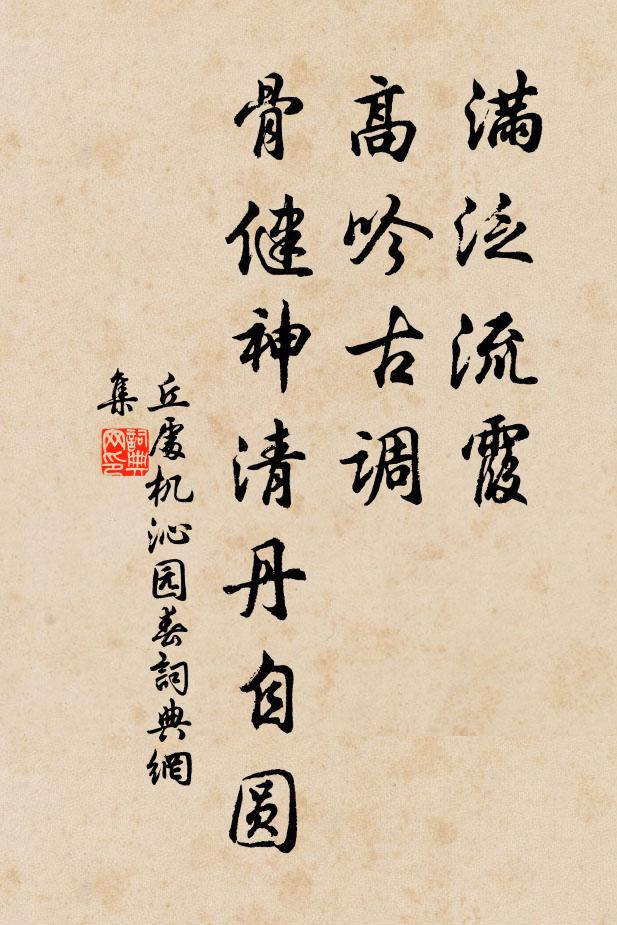 满泛流霞
高吟古调
骨健神清丹自圆
丘處机沁园春詞典網
集
詞典
网印